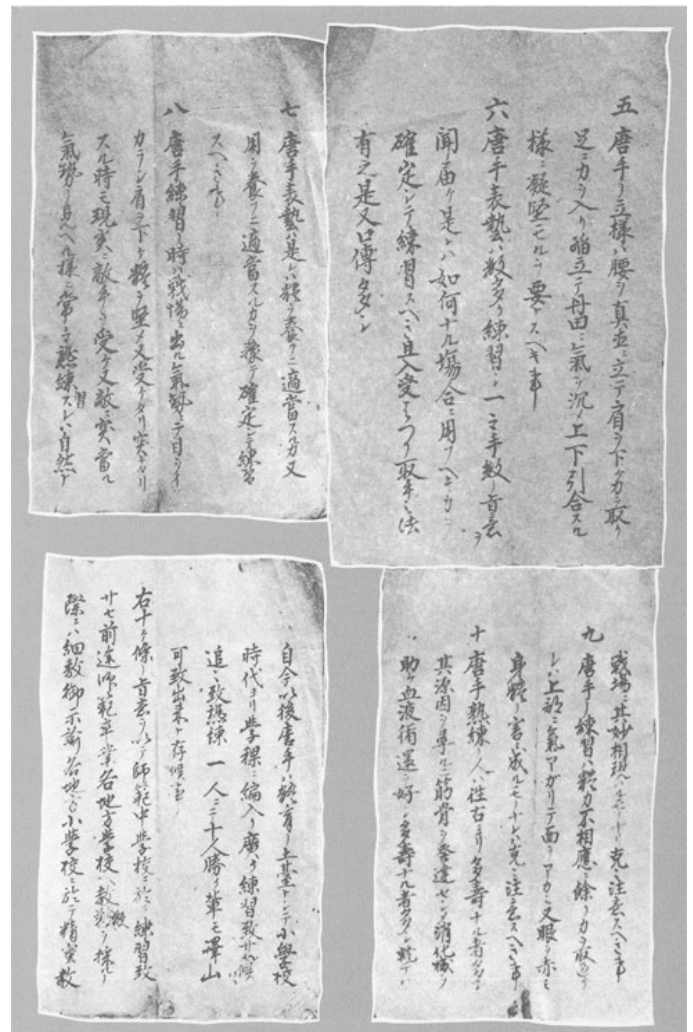 五 唐手ノ立様ハ腰ヲ真直ニ立テ肩ヲ下ケカヲ取リ
足ニ力ヲ入リ踏立テ丹田ニ氣ヲ沉メ上下引合スル
様ニ凝堅モルヲ要トスヘキ事
六 唐手表藝ハ数多ク練習シ一々手数ノ旨意ヲ
聞届ケ是レハ如何ナル塲合ニ用フヘキカヲ
確定シテ練習スヘシ且入受ハツシ取手ノ法
有之是又口傳多シ
七 唐手表藝ハ是レハ體ヲ養フニ適當スルカ又
用ヲ養フニ適當スルカヲ豫テ確定シテ練習
スヘキ事
八 唐手練習ノ時ハ戦場ニ出ル氣勢ニテ目ヲイ
カラシ肩ヲ下ケ體ヲ堅メ又受ケタリ突キタリ
スル時モ現実ニ敵手ヲ受ケ又敵ニ突當ル
氣勢ノ見ヘル様ニ常々練習スレハ自然ト
戦場ニ其妙相現ハルモノナリ克々注意スヘキ事
九 唐手ノ練習ハ體力不相應ニ餘リ力ヲ取過キ
レハ上部ニ氣アガリテ面ヲアカミ又眼ヲ赤ミ
身體ノ害ニ成ルモノナレハ克々注意スヘキ事
十 唐手熟練ノ人ハ往古ヨリ多寿ナル者多シ
其源因ヲ尋ルニ筋骨ヲ發達セシメ消化機ヲ
助ケ血液循還ヲ好クシ多寿ナル者多シ就テハ
自今以後唐手ハ體育ノ土臺トシテ小學校
時代ヨリ學課ニ編入リ廣ク練習致サセ候ハヽ
追々致熟練一人ニテ十人勝ノ輩モ澤山
可致出来ト存候事
右十ヶ條ノ旨意ヲ以テ師範中學校ニ於テ練習致
サセ前途師範卒業各地方學校ヘ教鞭ヲ採ルノ
際ニハ細敷御示諭各地方小學校ニ於テ精実教